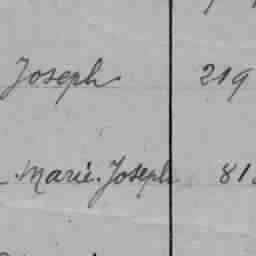 Joseph 219
Marie. Joseph 81